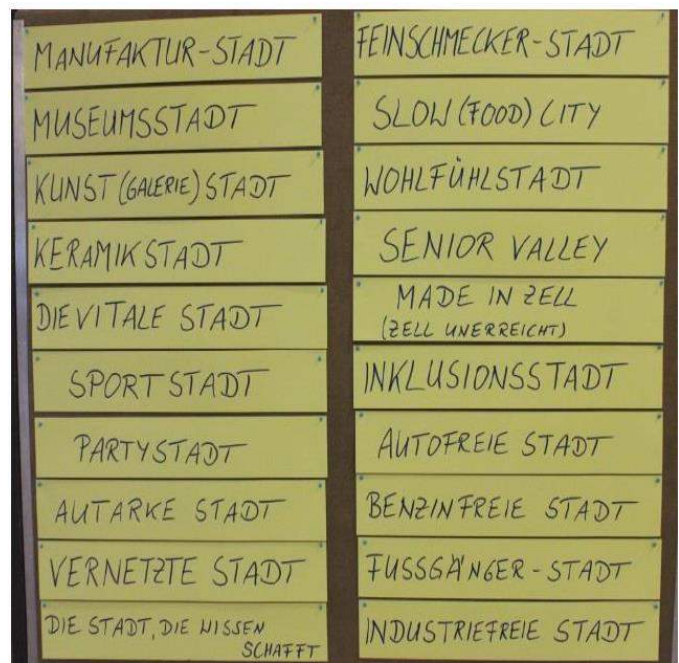 MANUFAKTUR-STADT
MUSEUMSSTADT
KUNST (GALERIE) STADT
KERAMIKSTADT
DIE VITALE STADT
SPORTSTADT
PARTYSTADT
AUTARKE STADT
VERNETZTE STADT
DIE STADT, DIE WISSEN
SCHAFFT
FEINSCHMECKER-STADT
SLOW (FOOD) CITY
WOHLFÜHLSTADT
SENIOR VALLEY
MADE IN ZELL
(ZELL UNERREICHT)
INKLUSIONSSTADT
AUTOFREIE STADT
BENZINFREIE STADT
FUSSGÄNGER-STADT
INDUSTRIEFREIE STADT